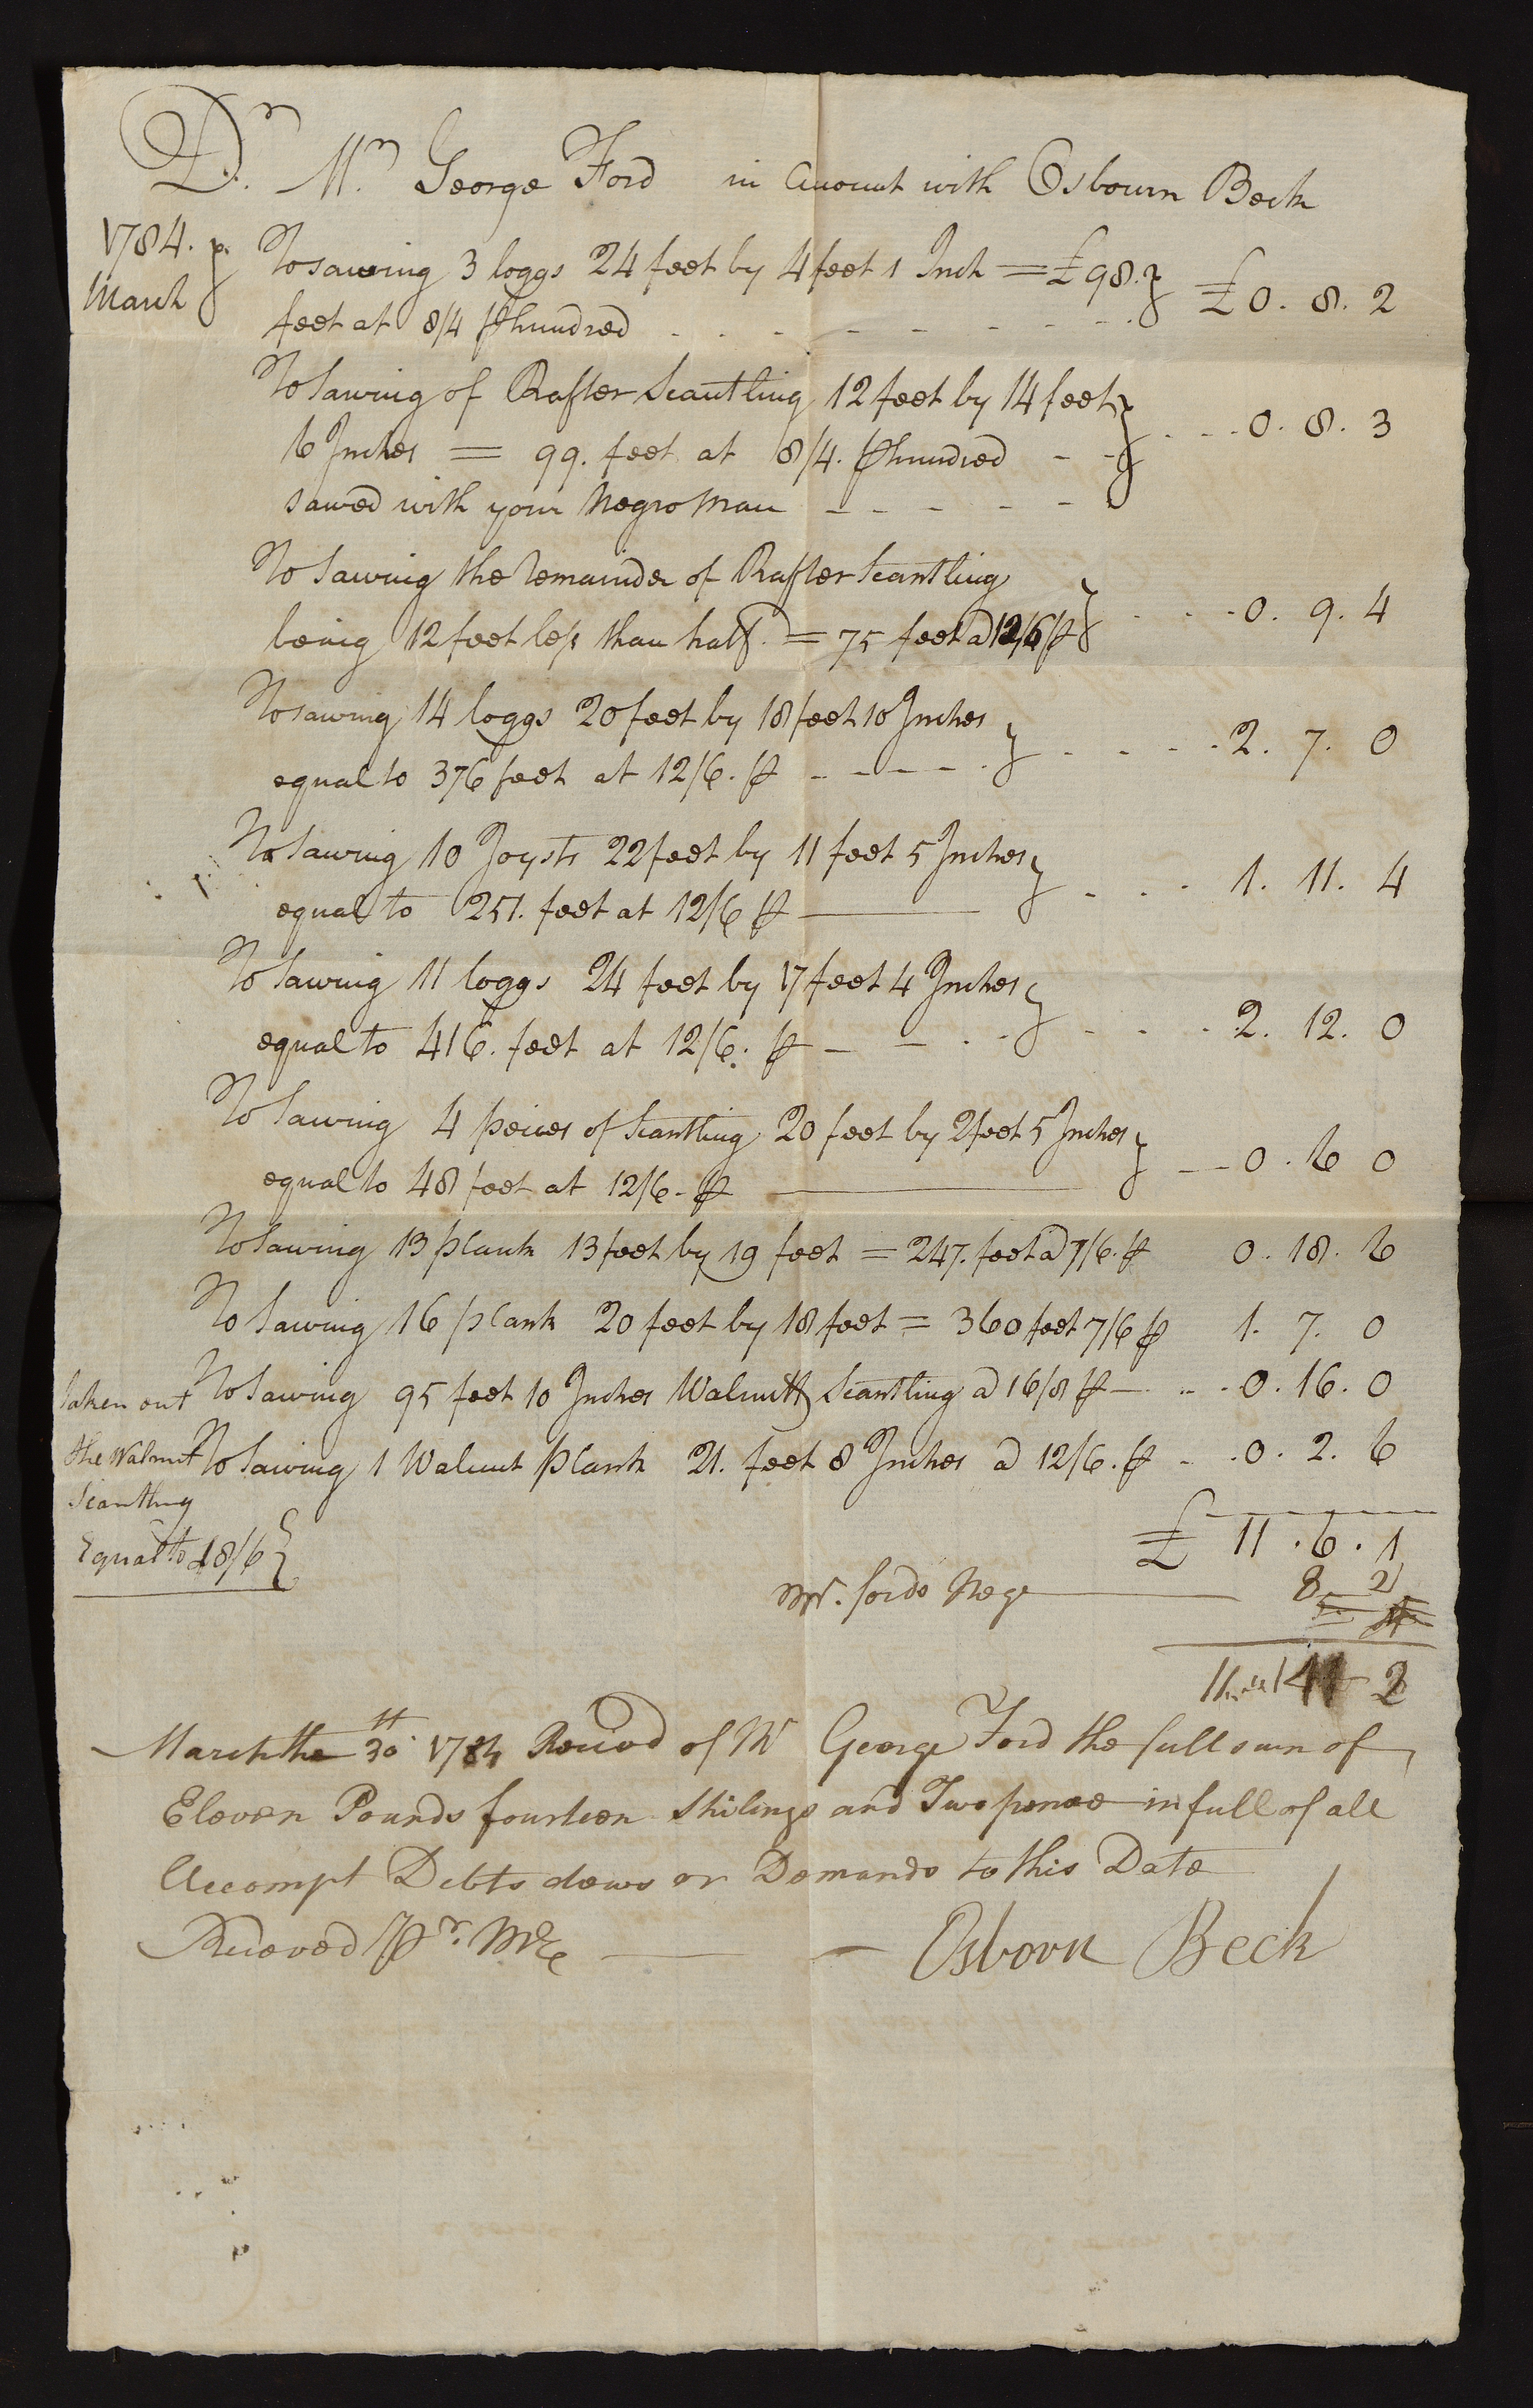 Dr. Mr. George Ford in Account with Osbourn Beck
1784.
March
To sawing 3 loggs 24 feet by 4 feet 1 Inch = £98.
feet at 8/4 ⅌ hundred £0. 8. 2
To Sawing of Rafter Scantling 12 feet by 14 feet
6 Inches = 99. feet at 8/4. ⅌ hundred 0. 8. 3
sawed with your Negro Man
To Sawing the Remainder of Rafter Scantling
being 12 feet less than half. = 75 feet @ 12/6 ⅌ 0. 9. 4
To sawing 14 loggs 20 feet by 18 feet 10 Inches
equal to 376 feet at 12/6. ⅌ 2. 7. 0
To Sawing 10 Joysts 22 feet by 11 feet 5 Inches
equal to 251. feet at 12/6 ⅌ 1. 11. 4
To Sawing 11 loggs 24 feet by 17 feet 4 Inches
equal to 416. feet at 12/6. ⅌ 2. 12. 0
To Sawing 4 peices of Scantling 20 feet by 2 feet 5 Inches
equal to 48 feet at 12/6. ⅌ 0. 6 0
To Sawing 13 plank 13 feet by 19 feet = 247. feet @ 7/6. ⅌ 0. 18. 6
To Sawing 16 plank 20 feet by 18 feet = 360 feet 7/6 ⅌ 1. 7. 0
To Sawing 95 feet 10 Inches Walnutt Scantling @ 16/8 ⅌ 0. 16. 0
To Sawing 1 Walnut plank 21. feet 8 Inches @ 12/6. ⅌ 0. 2. 6
taken out
the Walnut
Scantling
Equal to 18/6
£ 11. 6. 1
Mr. fords Nege 8 2
11 14 2
March the 30th 1784 Receivd of Mr George Ford the full sum of
Eleven Pounds fourteen Shilings and Two pence in full of all
Accompt Debts dews or Demands to this Date
Receved Pr. Me
Osborn Beck